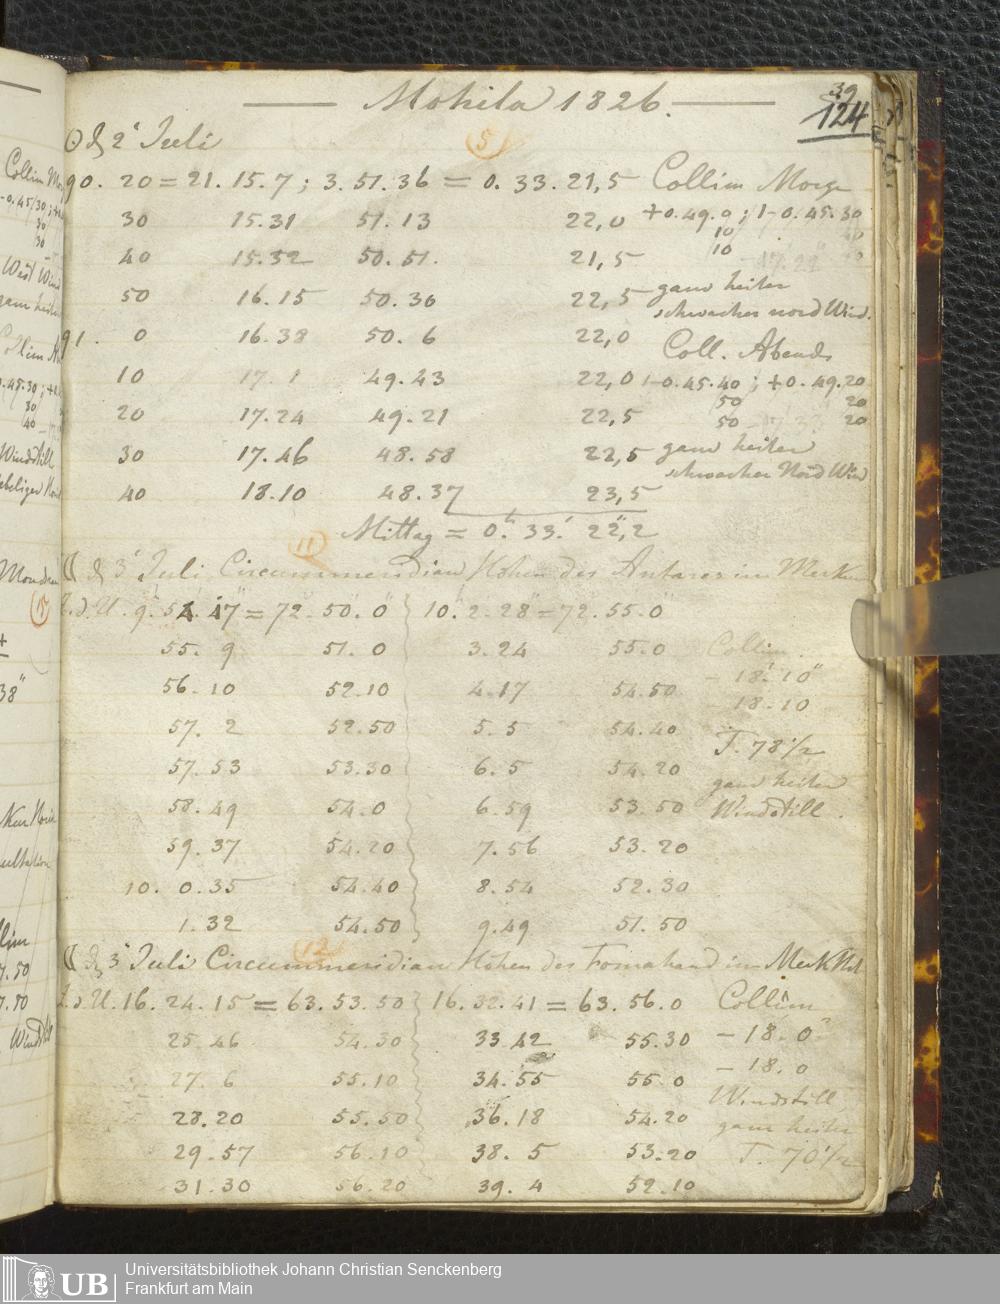 Mohila 1826.
39
124
☉ d 2t Juli
5
90. 20 = 21. 15. 7 ; 3. 51. 36 = 0. 33. 21,5 Collim Morge
30 15.31 51. 13 22,0 +0.49.0 ; -0.45.30
10 40
40 15.52 50. 51. 21,5 10
50 16. 15 50. 36 22,5 ganz heiter
schwacher nord Wind.
91. 0 16.38 50. 6 22,0 Coll. Abends
10 17. 1 49.43 22,0 -0.45.40 ; +0.49.20
50 20
20 17.24 49.21 22,5 50 20
30 17.46 48.58 22,5 ganz heiter
schwacher Nord Wind
40 18.10 48.37 23,5
Mittag = 0.h 33.' 22",2
11
☾ d 3t Juli Circummeridian Höhen des Antares im
9. 47" = 72. 50. 0" 10. 2. 28" = 72. 55. 0"
55. 9 51. 0 3. 24 55.0 Collim.
56. 10 52.10 4.17 54.50 - 18.' 10"
- 18. 10
57. 2 52.50 5. 5 54.40 T. 78 1/2
57. 53 53.30 6. 5 54.20 ganz heiter
58. 49 54.0 6. 59 53. 50 Windstill.
59. 37 54.20 7. 56 53. 20
10. 0.35 54.40 8. 54 52. 30
1. 32 54.50 9.49 51. 50
12
☾ d 3t Juli Circummeridian Höhen des Fomahand im
U. 16. 24. 15 = 63. 53. 50 16. 32. 41 = 63. 56. 0 Collim
25. 46 54. 30 33 42 55.30 - 18.' 0"
27. 6 55.10 34. 55 55. 0 - 18. 0
Windstill
28. 20 55.50 36. 18 54.20 ganz heiter
29. 57 56.10 38. 5 53.20 T. 70 1/2
31. 30 56.20 39. 4 52. 10
Collim
ganz heiter
38"
UB Universitätsbibliothek Johann Christian Senckenberg
Frankfurt am Main